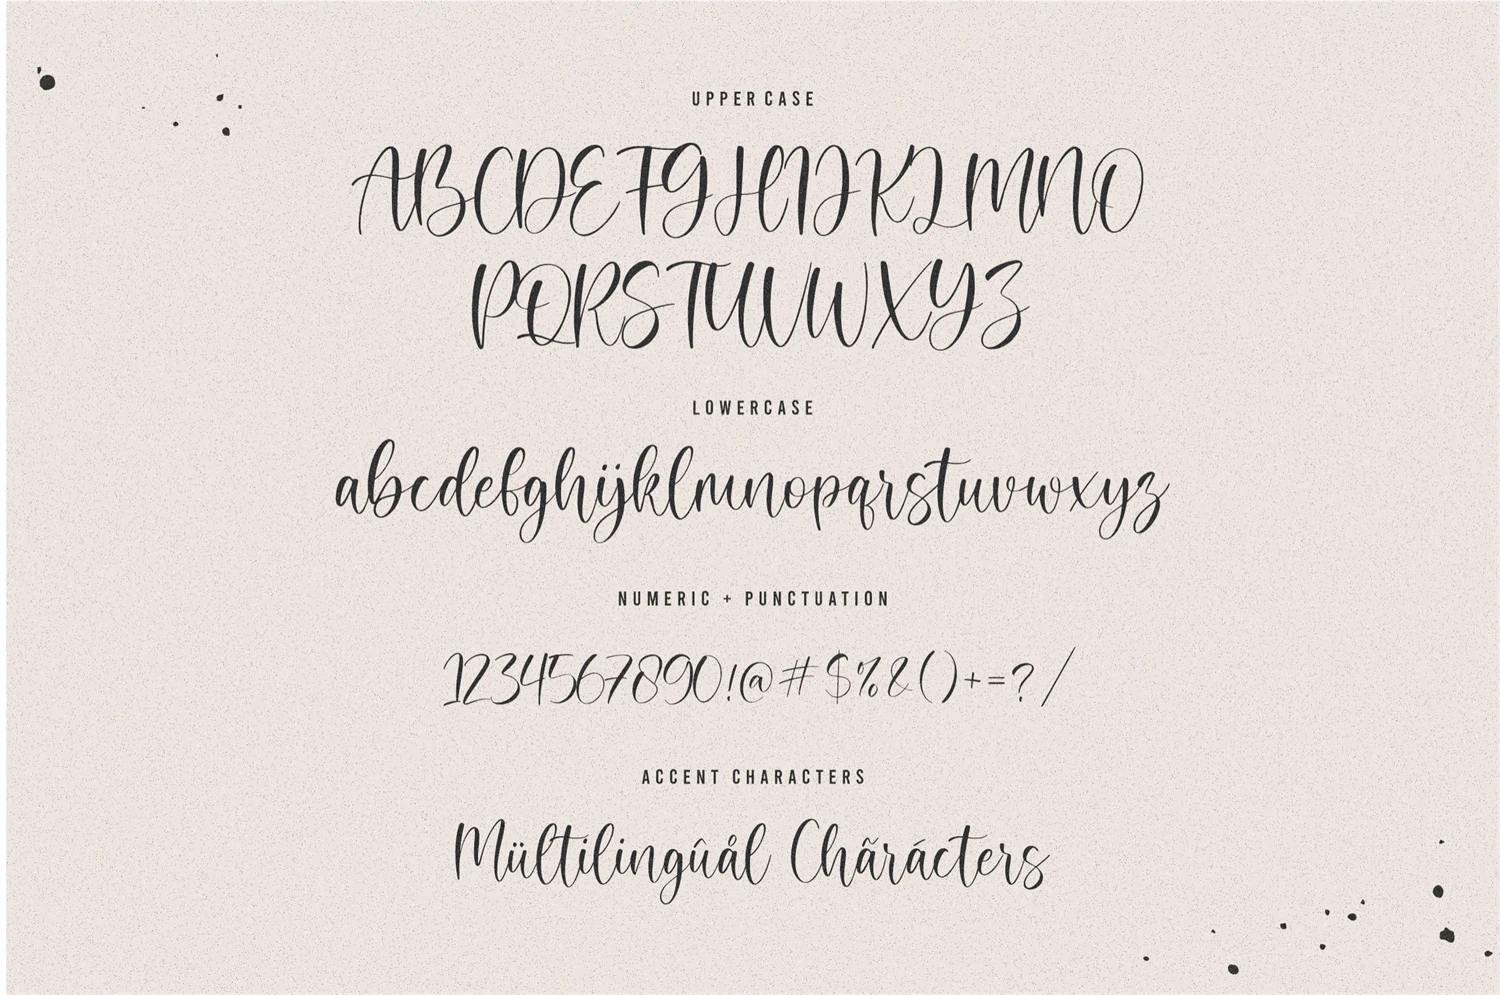 UPPER CASE
ABCDEFGHIJKLMNO
PQRSTUVWXYZ
LOWERCASE
abcdefghijklmnopqrstuvwxyz
NUMERIC + PUNCTUATION
1234567890!@#$%&()+=?/
ACCENT CHARACTERS
Mültilingûål Chãrácters